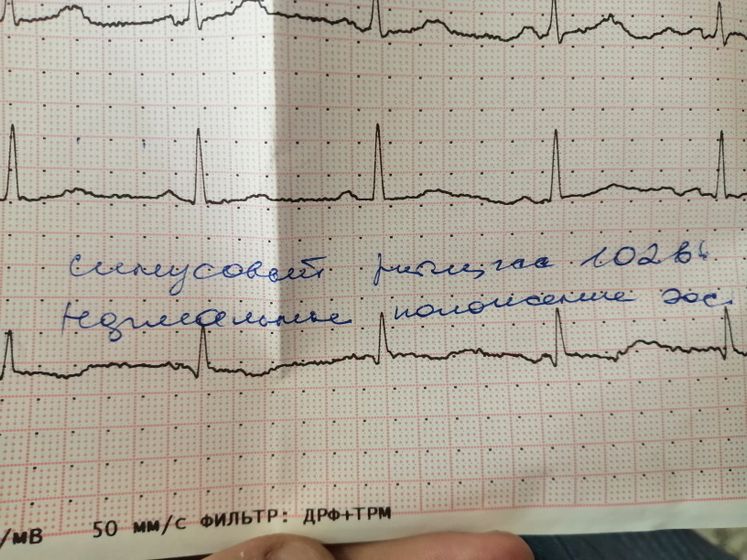 Синусовый ритм, чсс 102 в 1'
Нормальное положение эос.
/мВ 50 мм/с ФИЛЬТР: ДРФ+ТРМ